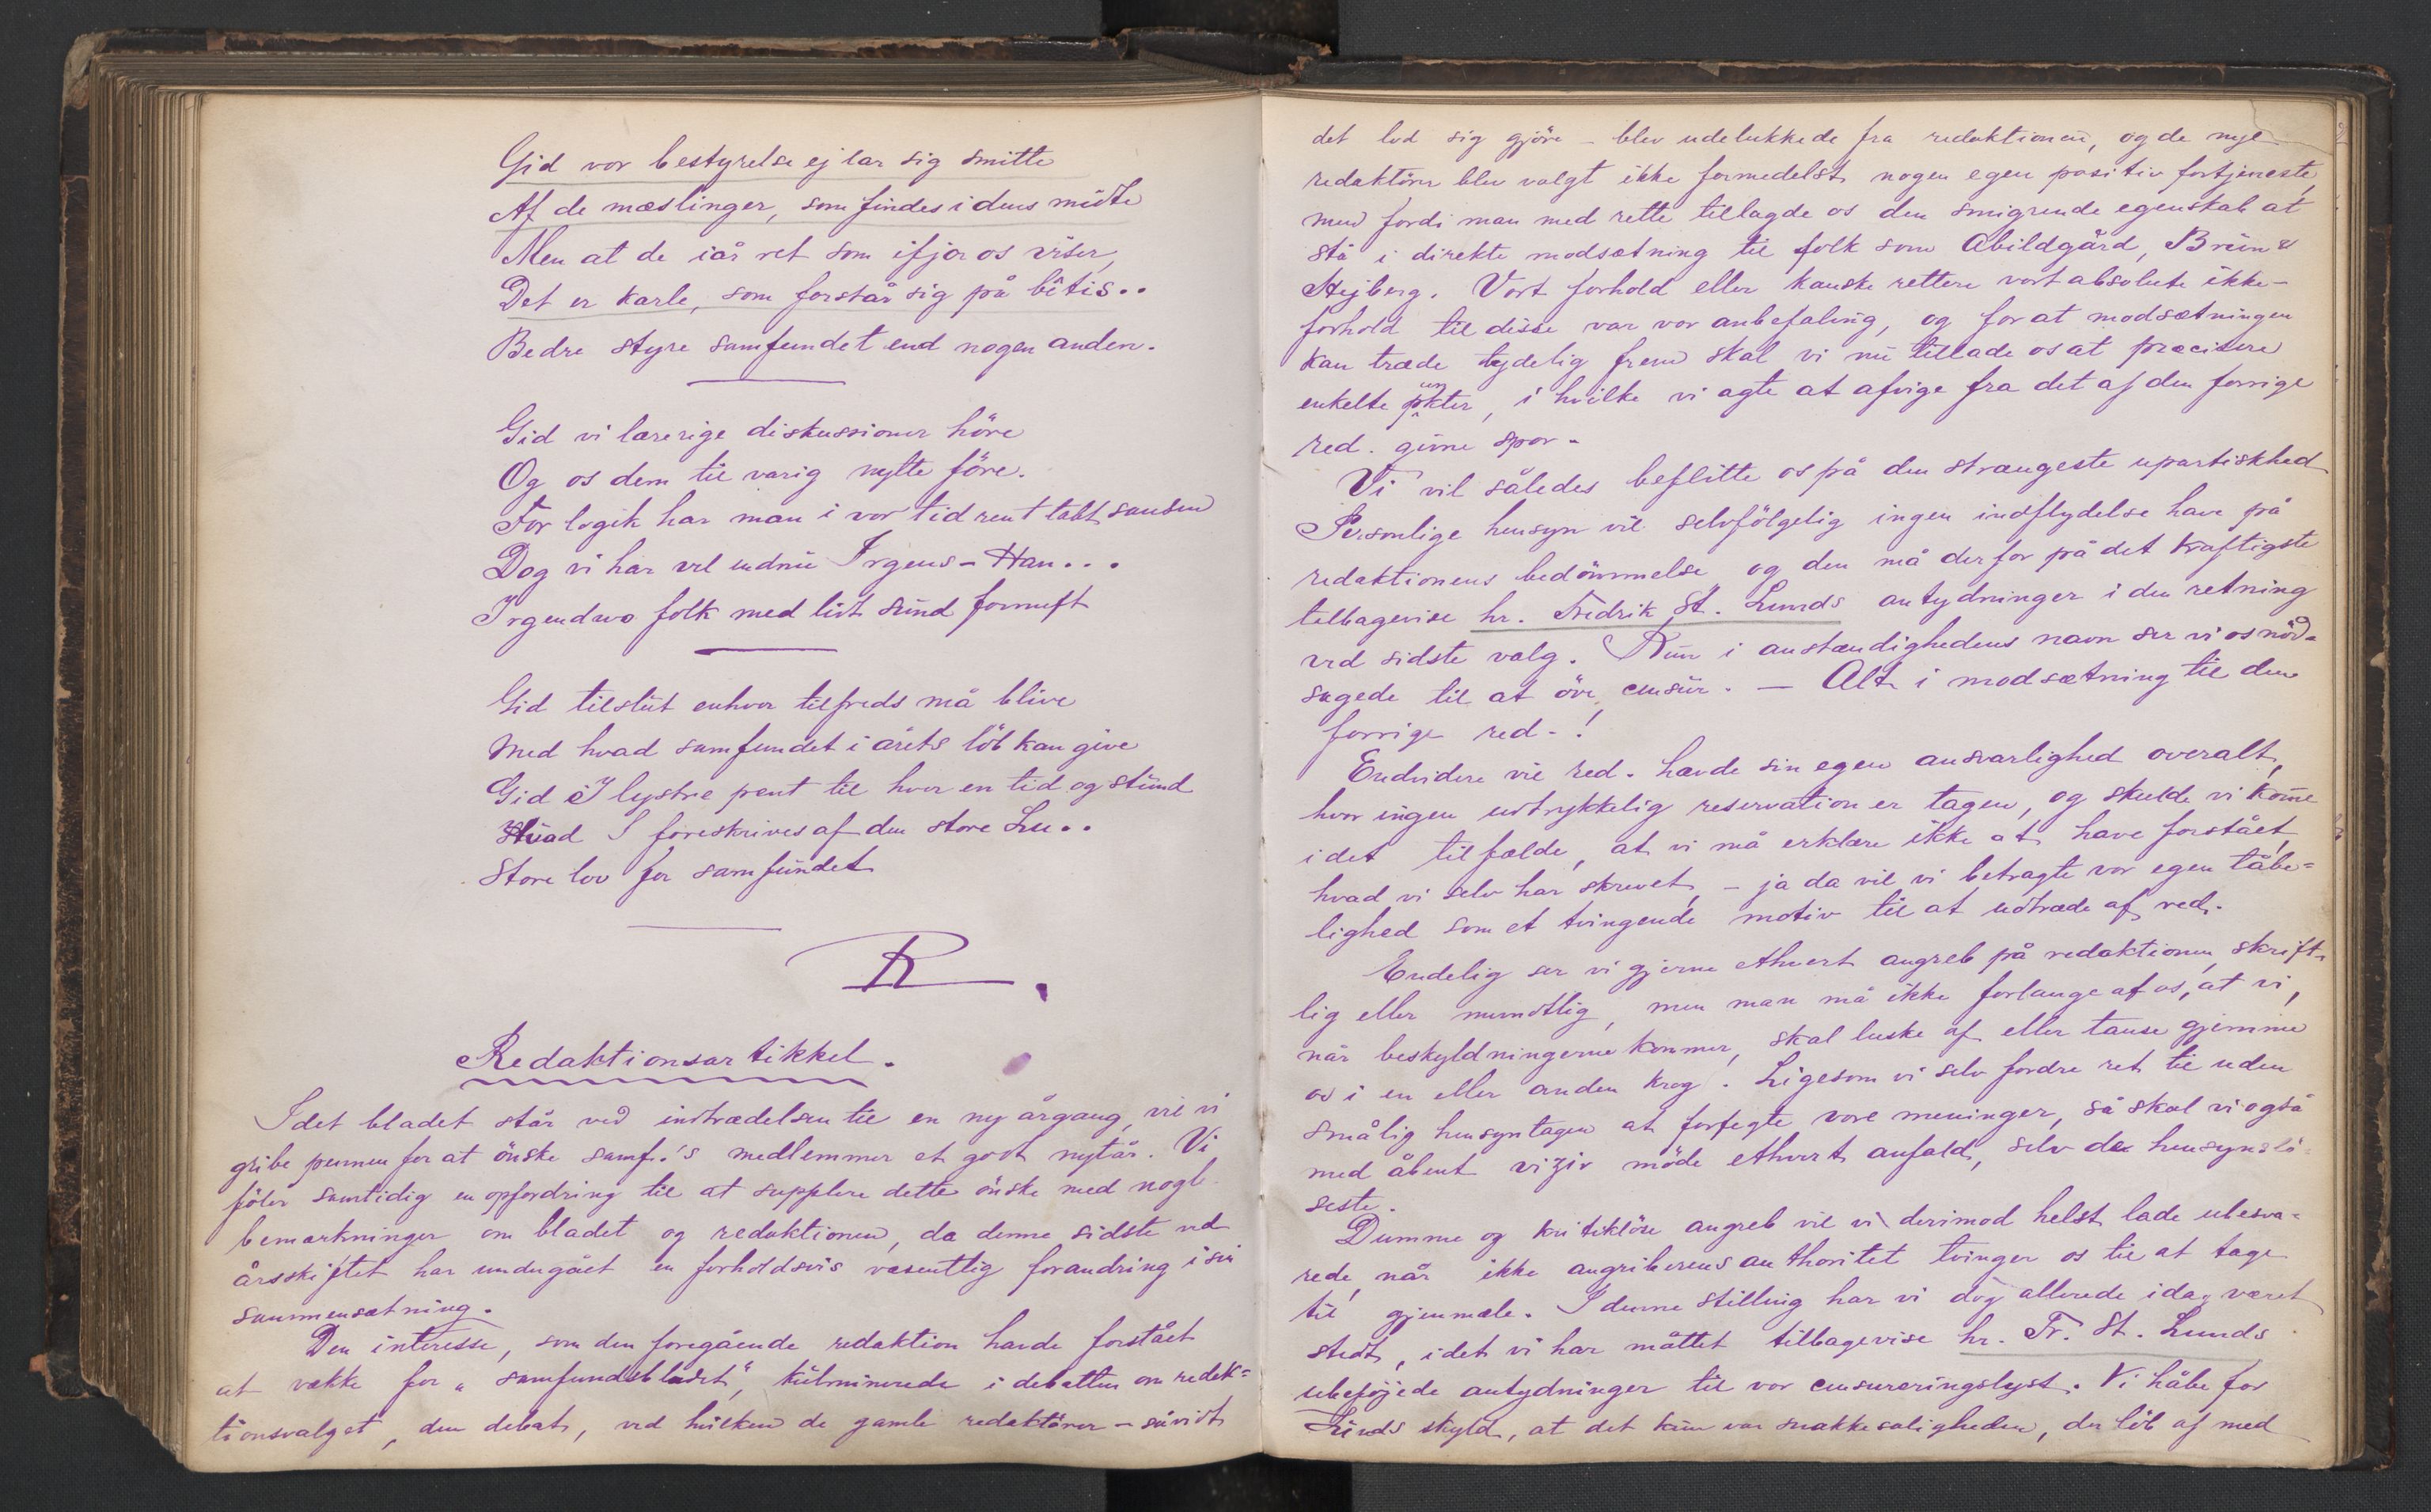 Gid vor bestyrelse ej lar sig smitte
Af de mæslinger, som findes i dens midte
Men at de iår ret som ifjor os viser,
Det er karle, som forstår sig på bêtis..
Bedre styre samfundet end nogen anden.
Gid vi lærerige diskussioner höre
Og os dem til varig nytte före.
For logik har man i vor tid rent tabt sansen
Dog vi har vel endnu Irgens-Han...
Irgendwo folk med lidt sund fornuft
Gid tilslut enhver tilfreds må blive
Med hvad samfundet i årets löb kan give
Gid I lystre pent til hver en tid og stund
Hvad I foreskrives af den store Lu..
Store lov for samfundet
R.
Redaktionsartikkel.
Idet bladet står ved indtrædelsen til en ny årgang, vil vi
gribe pennen for at önske samf.'s medlemmer et godt nytår. Vi
föler samtidig en opfordring til at supplere dette önske med nogle
bemærkninger om bladet og redaktionen, da denne sidste ved
årsskiftet har undergået en forholdsvis væsentlig forandring i sin
sammensætning.
Den interesse, som den foregående redaktion havde forstået
at vække for "samfundsbladet", kulminerede i debatten om redak=
tionsvalget, den debat, ved hvilken de gamle redaktörer – såvidt
det lod sig gjöre – blev udelukkede fra redaktionen, og de nye
redaktörer blev valgt ikke formedelst nogen egen positiv fortjeneste,
men fordi man med rette tillagde os den smigrende egenskab at
stå i direkte modsætning til folk som Abildgård, Bruun &
Hejberg. Vort forhold eller kanske rettere vort absolute ikke-
forhold til disse var vor anbefaling, og for at modsætningen
kan træde tydelig frem skal vi nu tillade os at præcisere
enkelte punkter, i hvilke vi agte at afvige fra det af den forrige
red. givne spor.
Vi vil således beflitte os på den strængeste upartiskhed
Personlige hensyn vil selvfölgelig ingen indflydelse have på
redaktionens bedömmelse og den må derfor på det kraftigste
tilbagevise hr. Fredrik St. Lunds antydninger i den retning
ved sidste valg. Kun i anstændighedens navn ser vi os nöd-
sagede til at öve censur. — Alt i modsætning til den
forrige red.!
Endvidere vil red. hævde sin egen ansvarlighed overalt,
hvor ingen udtrykkelig reservation er tagen, og skulde vi komme
i det tilfælde, at vi må erklære ikke at have forstået,
hvad vi selv har skrevet, – ja da vil vi betragte vor egen tåbe=
lighed som et tvingende motiv til at udtræde af red.
Endelig ser vi gjerne ethvert angreb på redaktionen, skrift-
lig eller mundtlig, men man må ikke forlange af os, at vi,
når beskyldningerne kommer, skal luske af eller tause gjemme
os i en eller anden krog. Ligesom vi selv fordre ret til uden
smålig hensyntagen at forfegte vore meninger, så skal vi også
med åbent vizir möde ethvert anfald, selv de hensynslö-
seste.
Dumme og kritiklöse angreb vil vi derimod helst lade ubesva-
rede, når ikke angriberens authoritet tvinger os til at tage
til gjenmæle. I denne stilling har vi dog allerede idag været
stedt, idet vi har måttet tilbagevise hr. Fr. St. Lunds
ubeföjede antydninger til vor censureringslyst. Vi håbe for
Lunds skyld, at det kun var snakkesaligheden, der löb af med